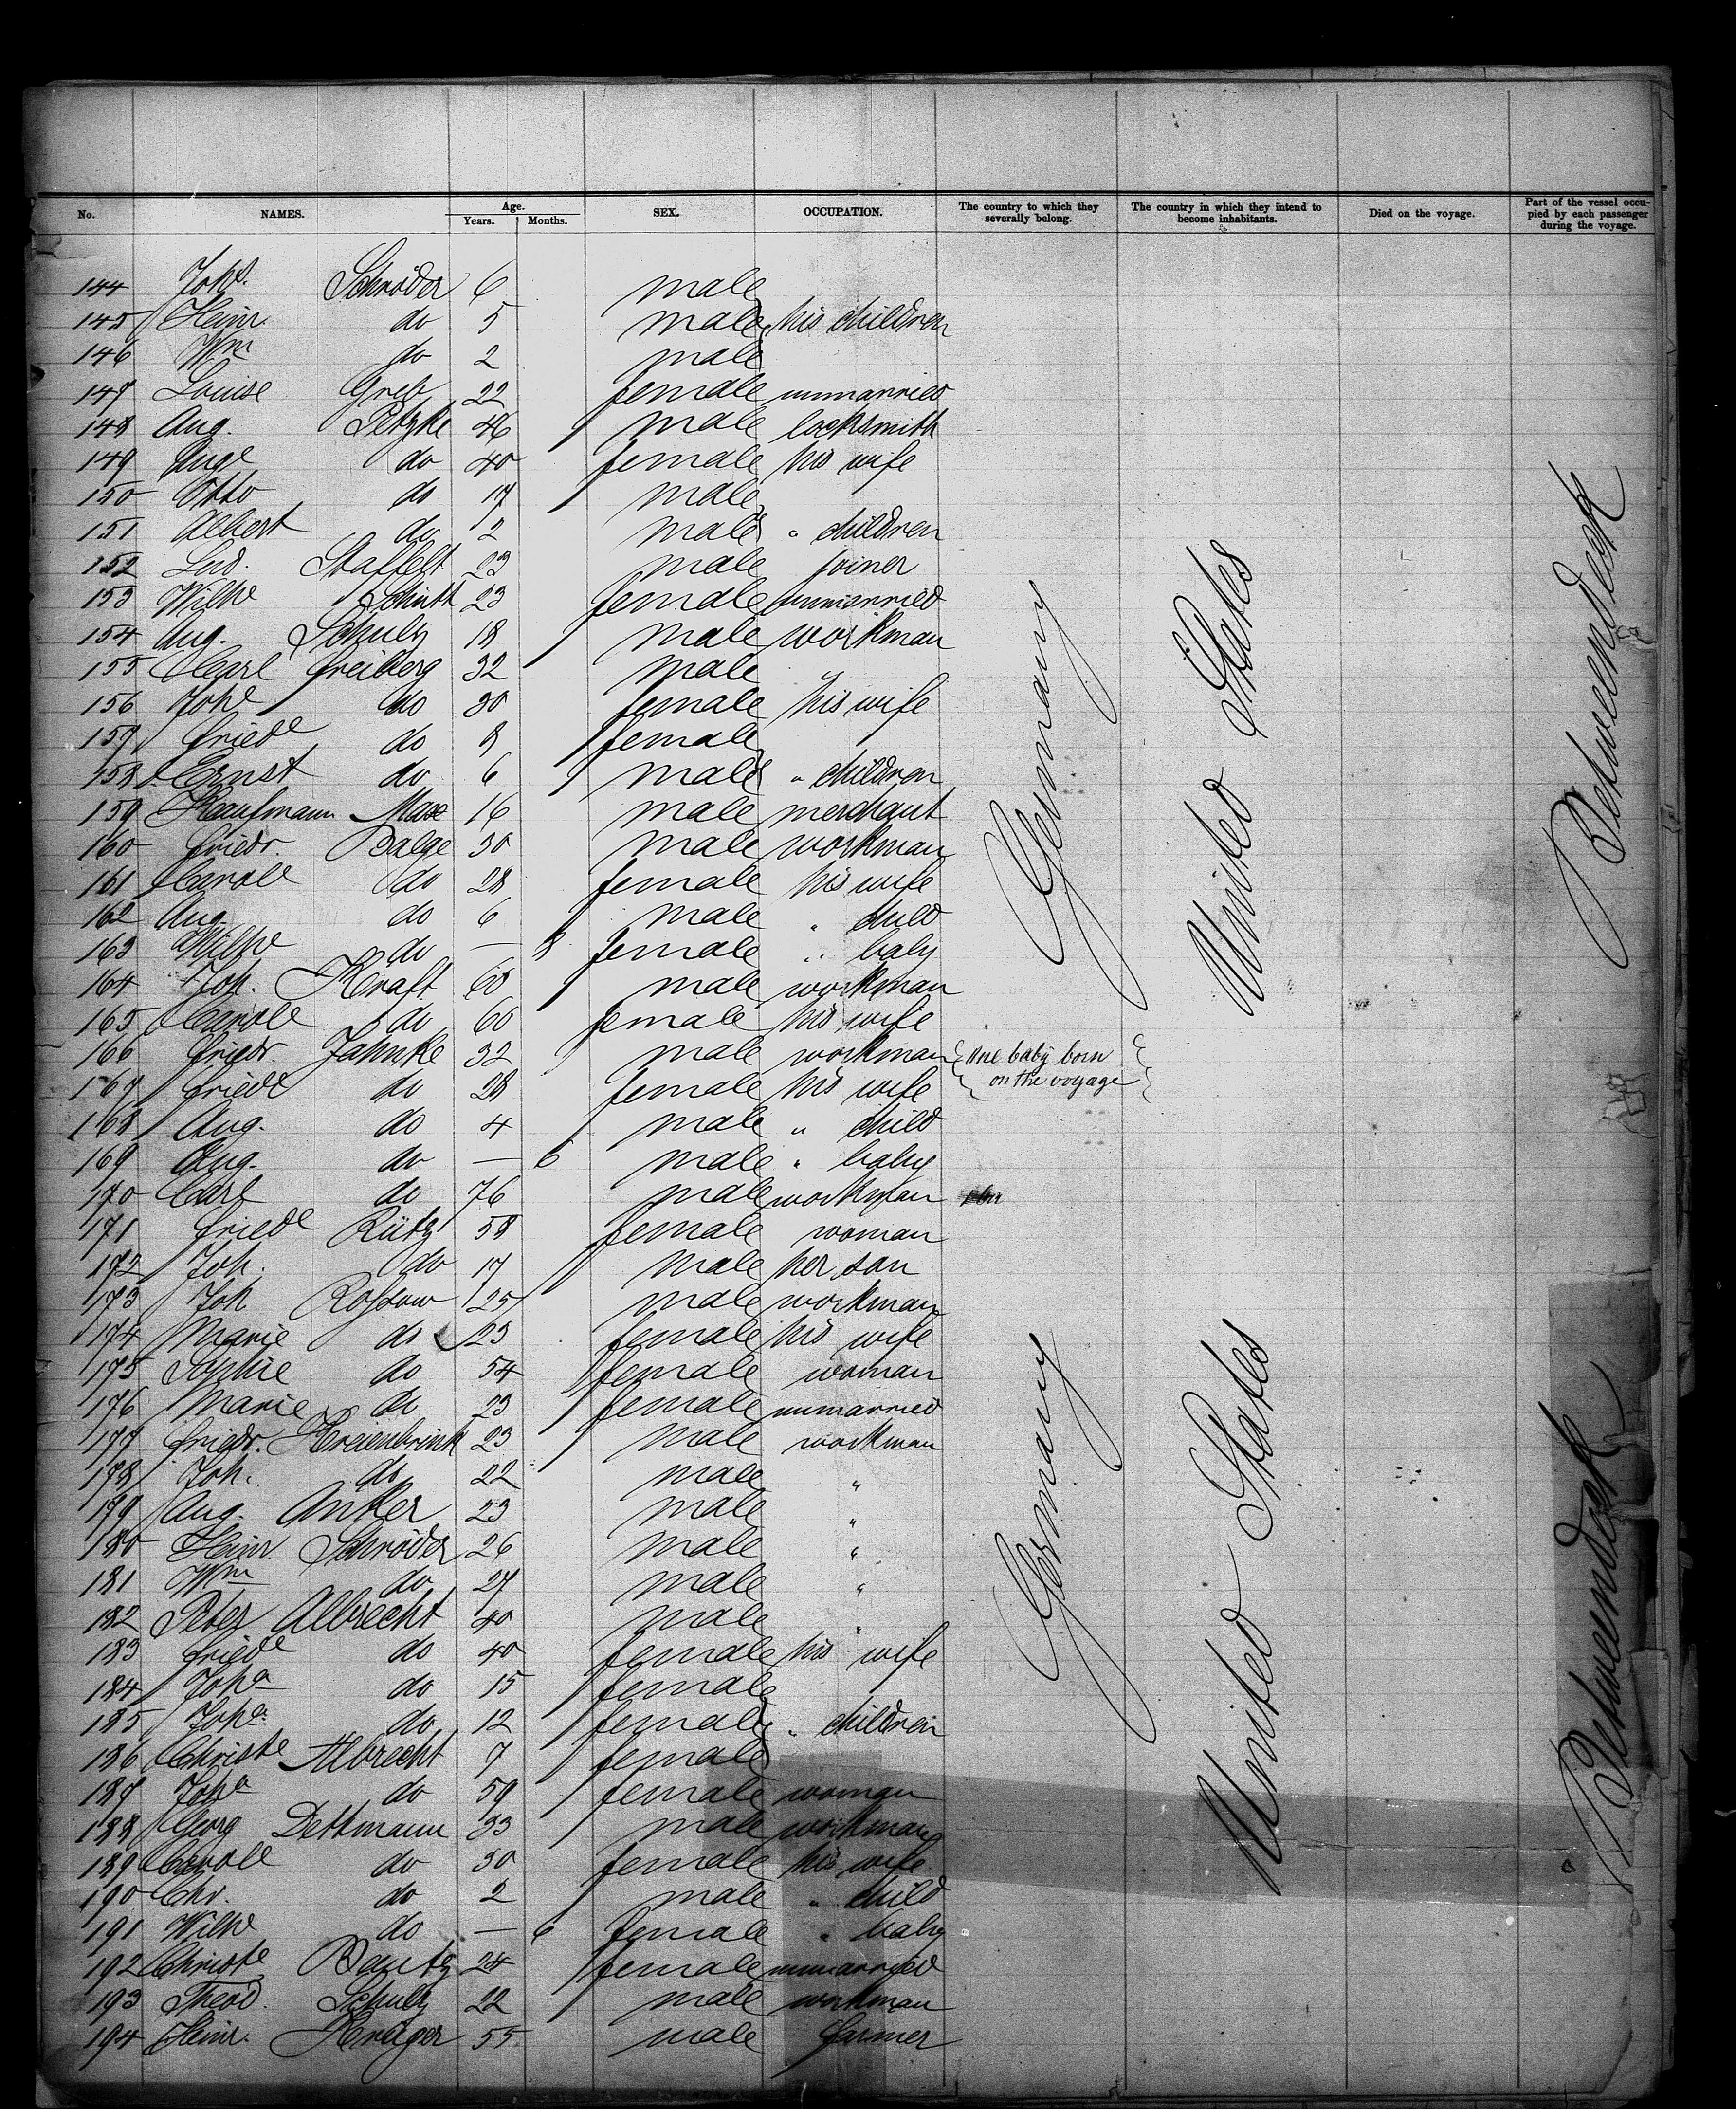 No. NAMES. Age. Years. Months. SEX. OCCUPATION. The country to which they severally belong. The country in which they intend to become inhabitants. Died on the voyage. Part of the vessel occupied by each passenger during the voyage.
144 Johs. Schröder 6 male
145 Heinr. do 5 male his children
146 Wm do 2 male
147 Louise Greb 22 female unmarried
148 Aug. Petzke 46 male locksmith
149 Auge do 40 female his wife
150 Otto do 17 male
151 Albert do 2 male " children
152 Lud. Staffelt 23 male joiner
153 Wilhe Schutt 23 female unmarried
154 Aug. Schulz 18 male workman
155 Carl Freiberg 32 male "
156 Johe do 30 female his wife
157 Friede do 8 female
158 Ernst do 6 male " children
159 Kaufmann Max 16 male merchant
160 Friedr. Balge 30 male workman
161 Carole do 28 female his wife
162 Aug. do 6 male " child
163 Wilhe do — 8 female " baby
164 Joh. Kraft 60 male workman
165 Carole do 60 female his wife
166 Friedr. Jahnke 32 male workman One baby born
167 Friede do 28 female his wife on the voyage
168 Aug. do 4 male " child
169 Aug. do — 6 male " baby
170 Carl do 76 male workman
171 Friede Rütz 58 female woman
172 Joh. do 17 male her son
173 Joh Rossow 25 male workman
174 Marie do 23 female his wife
175 Sophie do 54 female woman
176 Marie do 23 female unmarried
177 Friedr. Kreienbrink 23 male workman
178 Joh. do 22 male "
179 Aug. Anker 23 male "
180 Heinr. Schröder 26 male "
181 Wm do 27 male "
182 Peter Albrecht 40 male "
183 Friede do 40 female his wife
184 Joha do 15 female
185 Joha do 12 female " children
186 Christe Albrecht 7 female
187 Joha do 59 female woman
188 Georg Dettmann 33 male workman
189 Carole do 30 female his wife
190 Chr. do 2 male " child
191 Wilhe do — 6 female " baby
192 Christe Bautz 24 female unmarried
193 Theod. Schulz 22 male workman
194 Heinr. Krüger 55 male farmer
Germany
United States
Betweendeck
Germany
United States
Betweendeck